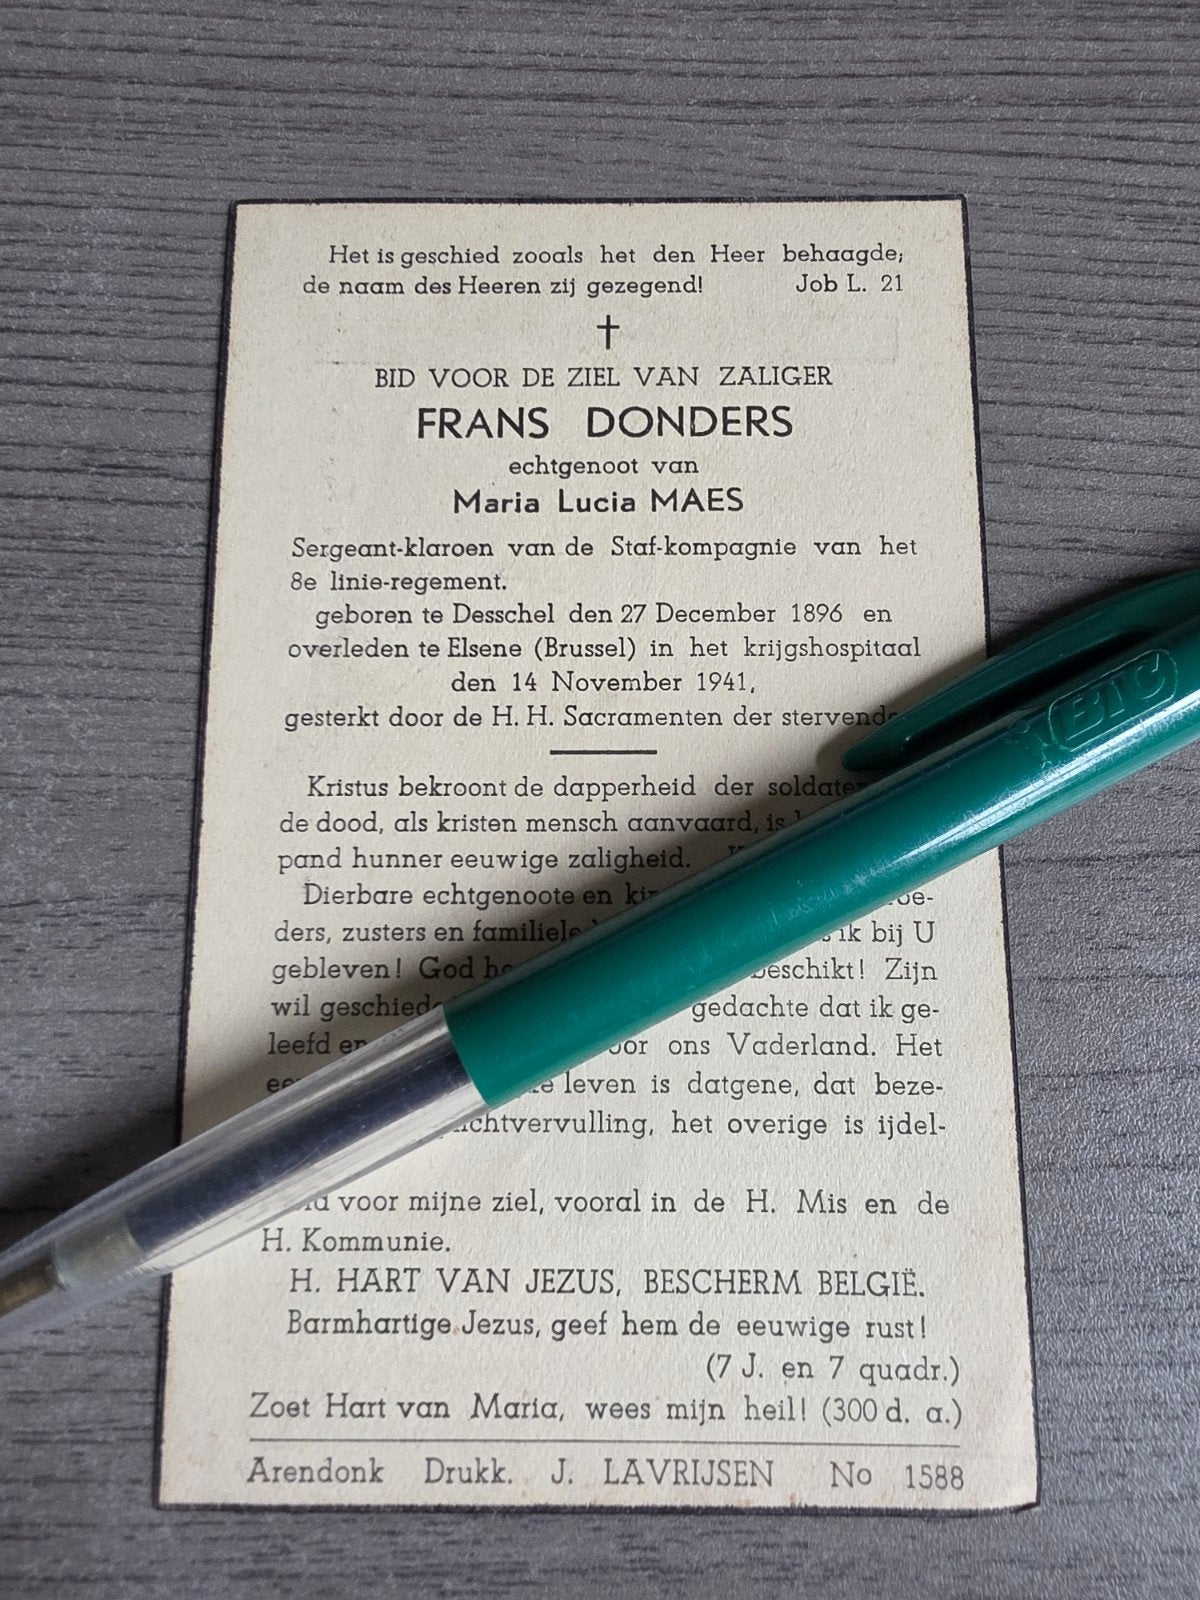 Het is geschied zooals het den Heer behaagde;
de naam des Heeren zij gezegend! Job L. 21
BID VOOR DE ZIEL VAN ZALIGER
FRANS DONDERS
echtgenoot van
Maria Lucia MAES
Sergeant-klaroen van de Staf-kompagnie van het
8e linie-regement.
geboren te Desschel den 27 December 1896 en
overleden te Elsene (Brussel) in het krijgshospitaal
den 14 November 1941,
gesterkt door de H. H. Sacramenten der
Kristus bekroont de dapperheid der
de dood, als kristen mensch aanvaard, is
pand hunner eeuwige zaligheid.
Dierbare echtgenoote en
ders, zusters en ik bij U
gebleven! God Zijn
wil gedachte dat ik ge-
leefd ons Vaderland. Het
leven is datgene, dat beze-
het overige is ijdel-
voor mijne ziel, vooral in de H. Mis en de
H. Kommunie.
H. HART VAN JEZUS, BESCHERM BELGIË.
Barmhartige Jezus, geef hem de eeuwige rust!
(7 J. en 7 quadr.)
Zoet Hart van Maria, wees mijn heil! (300 d. a.)
Arendonk Drukk. J. LAVRIJSEN No 1588
BIC